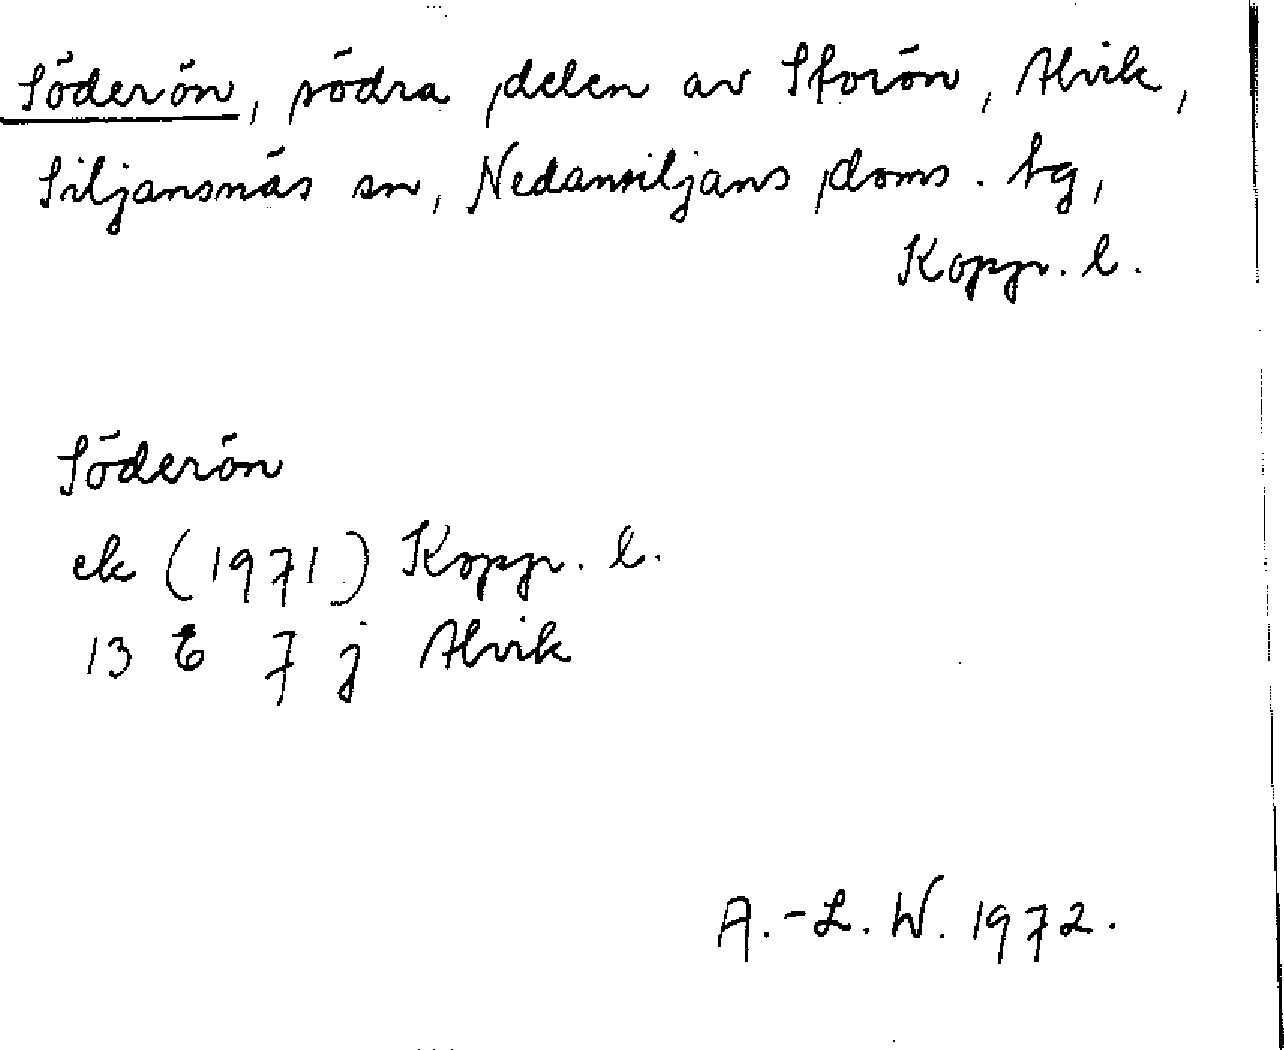 Söderön, södra delen av Storön, Alvik,
Siljansnäs sn, Nedansiljans doms. tg,
Koppr. l.
Söderön
ek (1971) Koppr. l.
13 E 7 j Alvik
A.-L. W. 1972.